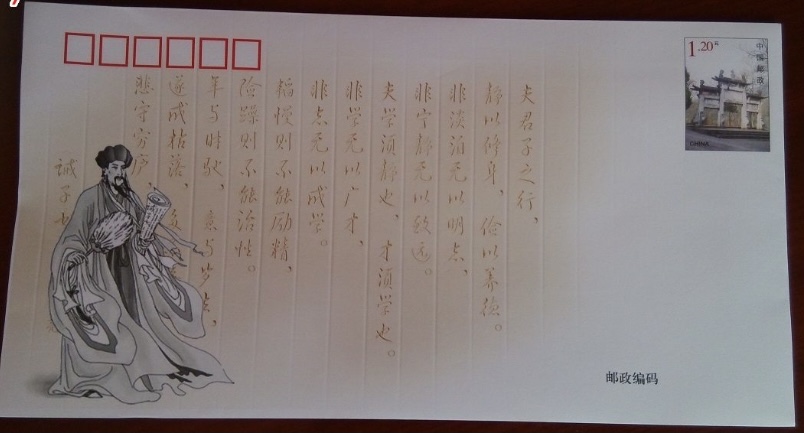 1.20元
中国邮政
CHINA
夫君子之行，
静以修身，俭以养德。
非淡泊无以明志，
非宁静无以致远。
夫学须静也，才须学也。
非学无以广才，
非志无以成学。
慢则不能励精，
险躁则不能治性。
年与时驰，意与岁去，
遂成枯落，多
悲守穷庐，
诫子
邮政编码